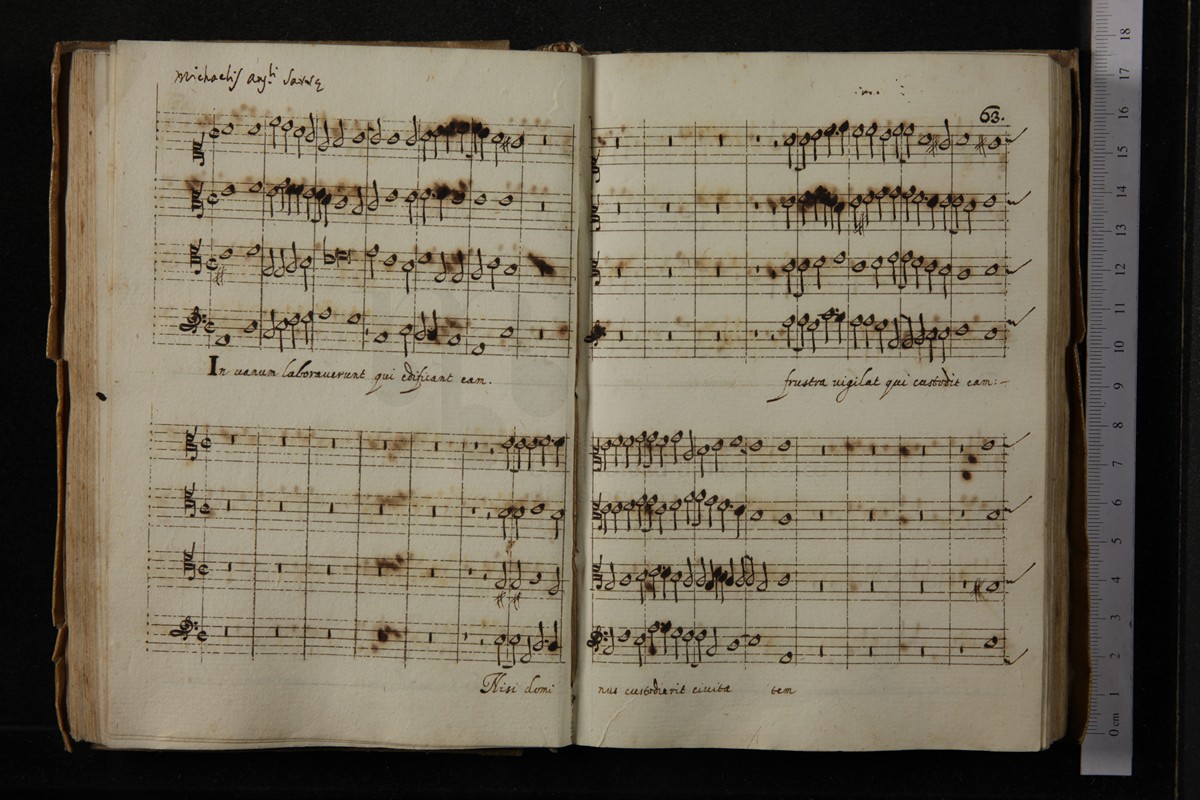 Michaelis Ang.li
63.
In uanum laborauerunt qui edificant eam.
frustra uigilat qui custodit eam:
Nisi domi nus custodierit ciuita tem
18
17
16
15
14
13
12
11
10
9
8
7
6
5
4
3
2
1
0 cm